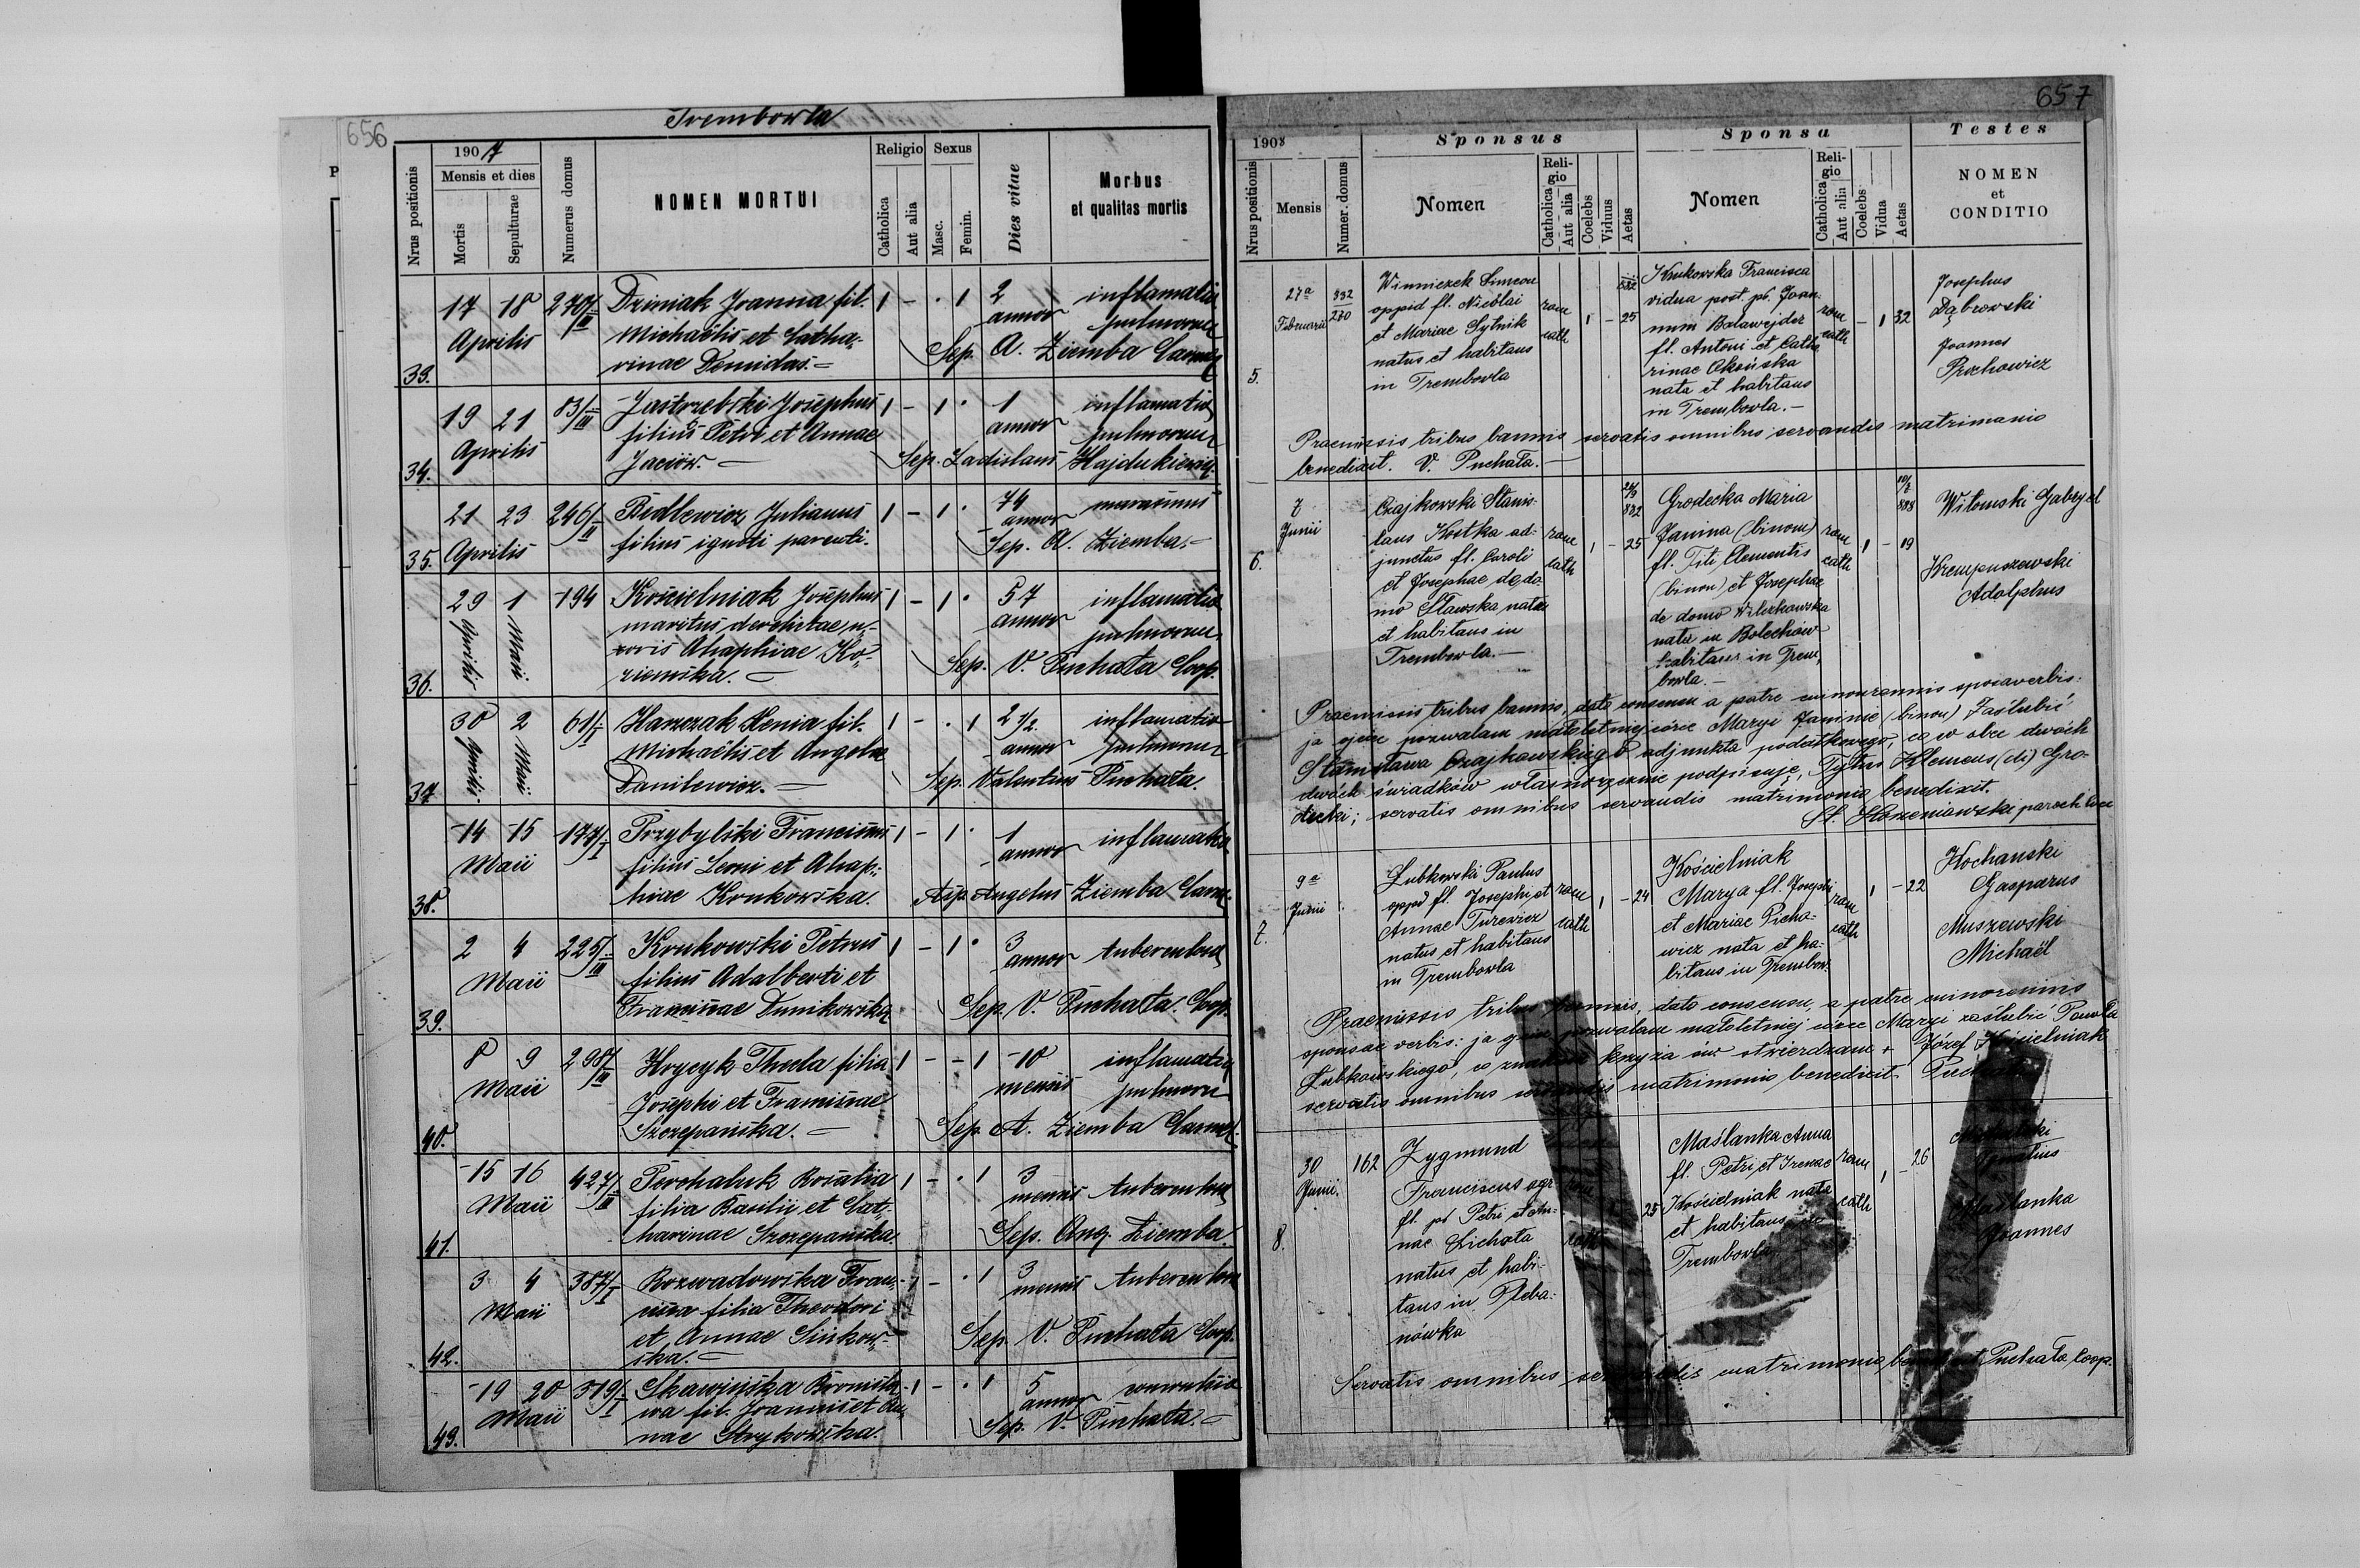 656
Trembowla
P
Nrus positionis
1907
Mensis et dies
Mortis
Sepulturae
Numerus domus
NOMEN MORTUI
Religio
Catholica
Aut alia
Sexus
Masc.
Femin.
Dies vitae
Morbus
et qualitas mortis
33.
17 18 270/III
Aprilis
Dziniak Joanna fil.
Michaëlis et Catha-
rinae Demidas.
1 - . 1
2
annor
inflamatio
pulmonum
Sep. A. Ziemba Carmel
34.
19 21 83/III
Aprilis
Jastrzebski Josephus
filius Petri et Annae
Jaciów.
1 - 1 .
1
annor
inflamatio
pulmonum
Sep. Ladislaus Hajdukiewicz
35.
21 23 246/II
Aprilis
Bedlewicz Julianus
filius ignoti parenti.
1 - 1 .
74
annor
marasmus
Sep. A. Ziemba.
36.
29 1 194
Aprilis Maii
Kościelniak Josephus
maritus derelictae u-
xoris Ahaphiae Ko-
zieńska.
1 - 1 .
57
annor
inflamatio
pulmonum
Sep. V. Puchała Coop.
37
30 2 61/I
Aprilis Maii
Harczak Xenia fil.
Michaëlis et Angela
Danilewicz.
1 - . 1
2 1/2
annor
inflamatio
pulmonum
Sep. Valentinus Puchała.
38.
14 15 177/I
Maii
Przybylski Franciscus
filius Leoni et Ahap-
hiae Krukowska.
1 - 1 .
1
annor
inflamatio
Sep. Angelus Ziemba Carm.
39.
2 4 225/III
Maii
Krukowski Petrus
filius Adalberti et
Franciscae Dunikowska
1 - 1 .
3
annor
tuberculosa
Sep. V. Puchała. Coop.
40.
8 9 298/III
Maii
Hrycyk Thecla filia
Josephi et Franciscae
Szczepańska.
1 - - 1
10
mensis
inflamatio
pulmonu
Sep. A. Ziemba Carmel.
41.
15 16 427/III
Maii
Perchaluk Rosalia
filia Basilii et Cat-
harinae Szczepańska.
1 - . 1
3
mensis
tuberculosa
Sep. Ang. Ziemba.
42.
3 4 387/I
Maii
Rozwadowska Fran-
cisca filia Theodori
et Annae Sinkow-
ska.
1 - . 1
3
mensis
tuberculosa
Sep. V. Puchała Coop.
43.
19 20 319/I
Maii
Skawińska Bronisla-
wa fil. Joannis et An-
nae Strykowska.
1 - . 1
5
annor
Sep. V. Puchała.
657
1908
Sponsus
Sponsa
Testes
Nrus positionis
Mensis
Numer. domus
Nomen
Reli-
gio
Catholica
Aut alia
Coelebs
Viduus
Aetas
Nomen
Reli-
gio
Catholica
Aut alia
Coelebs
Vidua
Aetas
NOMEN
et
CONDITIO
5.
27a
Februarii
270
Winniczek Simeon
oppid fl. Nicolai
et Mariae Sytnik
natus et habitans
in Trembovla
rom
cath
1 - 25
Krukovska Francisca
vidua post. pb. Joan-
nem Balawejder
fl. Antoni et Catha
rinae
nata et habitans
in Trembovla.
rom
cath
- 1 32
Josephus
Dąbrowski
Joannes
Prochowicz
Praemissis tribus bannis servatis omnibus servandis matrimonio
benedixit. V. Puchała.
6.
7
Junii
Czajkowski Stanis-
laus Kostka ad-
junctus fl. Caroli
et Josephae de do
mo Sławska natus
et habitans in
Trembowla.
rom
cath
1 - 25
Grodecka Maria
Janina (binom)
fl. Titi Clementis
(binom) et Josephae
de domo
nata in Bolechów
habitans in Trem-
bowla.
rom
cath
1 - 19
888
Witomski Gabryel
Krempuszewski
Adolphus
Praemissis tribus bannis, dato consensu a patre minorennis sponsae verbis:
ja ojciec pozwalam małoletniej córce Maryi Janinie (binom) zaślubić
Stanisława Czajkowskiego adjunkta podatkowego, co w obec dwóch
dwóch świadków własnoręcznie podpisuję, Tytus Klemens (di) Gro-
decki; servatis omnibus servandis matrimonio benedixit.
St. Korzeniowski paroch loci
7.
9a
Junii
Lubkowski Paulus
oppid fl. Josephi et
Annae Turewicz
natus et habitans
in Trembowla
rom
cath
1 - 24
Kościelniak
Marya fl. Josephi
et Mariae Picha-
wicz nata et ha-
bitans in Trembow.
rom
cath
1 - 22
Kochanski
Gasparus
Muszewski
Michaël
Praemissis tribus bannis, dato consensu, a patre minorennis
sponsae verbis: ja ojciec pozwalam małoletniej córce Maryi zaślubić Pawła
Lubkowskiego, co znakiem krzyża św stwierdzam + Józef Kościelniak
servatis omnibus servandis matrimonio benedixit
8.
30
Junii.
162
Zygmund
Franciscus agr
fl. pb Petri et An-
nae Lichota
natus et habi-
tans in Pleba-
nówka
25
Maślanka Anna
fl. Petri et Irenae
Kościelniak nata
et habitans in
Trembowla
rom
cath
1 - 26
Maślanka
Joannes
Servatis omnibus servandis matrimonio benedixit Puchała Coop.